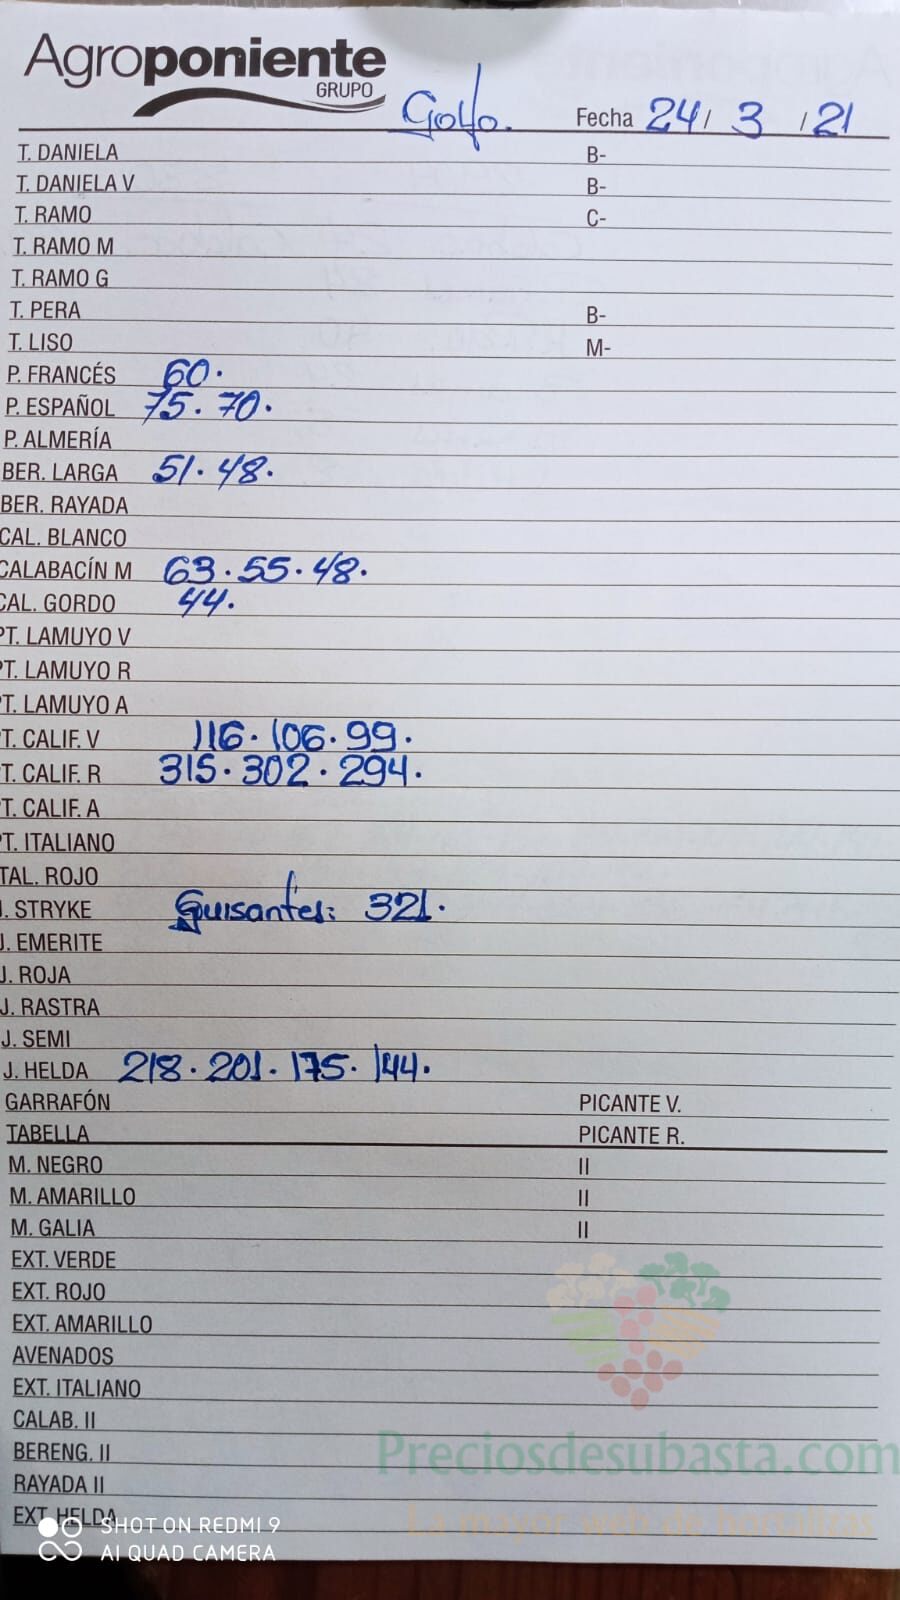 Agroponiente
GRUPO
Golfo. Fecha 24/ 3 /21
T. DANIELA B-
T. DANIELA V B-
T. RAMO C-
T. RAMO M
T. RAMO G
T. PERA B-
T. LISO M-
P. FRANCÉS 60.
P. ESPAÑOL 75. 70.
P. ALMERÍA
BER. LARGA 51. 48.
BER. RAYADA
CAL. BLANCO
CALABACÍN M 63. 55. 48.
CAL. GORDO 44.
PT. LAMUYO V
PT. LAMUYO R
PT. LAMUYO A
PT. CALIF. V 116. 106. 99.
PT. CALIF. R 315. 302. 294.
PT. CALIF. A
PT. ITALIANO
ITAL. ROJO
J. STRYKE Guisantes: 321.
J. EMERITE
J. ROJA
J. RASTRA
J. SEMI
J. HELDA 218. 201. 175. 144.
GARRAFÓN PICANTE V.
TABELLA PICANTE R.
M. NEGRO II
M. AMARILLO II
M. GALIA II
EXT. VERDE
EXT. ROJO
EXT. AMARILLO
AVENADOS
EXT. ITALIANO
CALAB. II
BERENG. II
RAYADA II
EXT. HELDA
Preciosdesubasta.com
La mayor web de hortalizas
SHOT ON REDMI 9
AI QUAD CAMERA